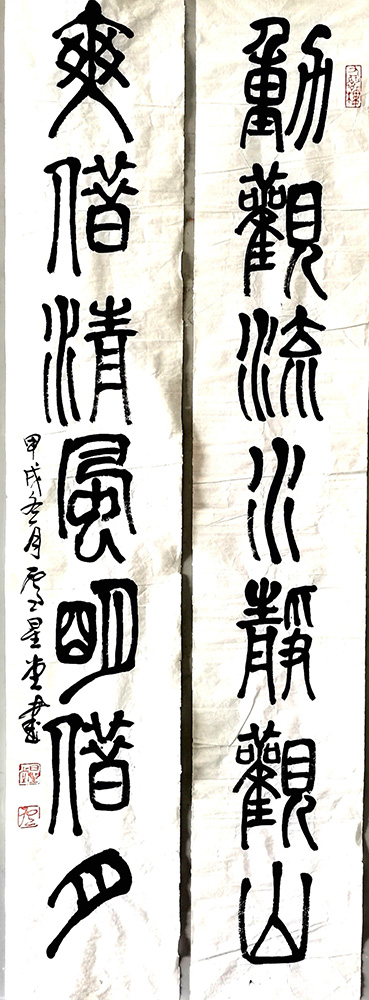 動觀流水靜觀山
爽借清風明借月
甲戌冬月
星堂書